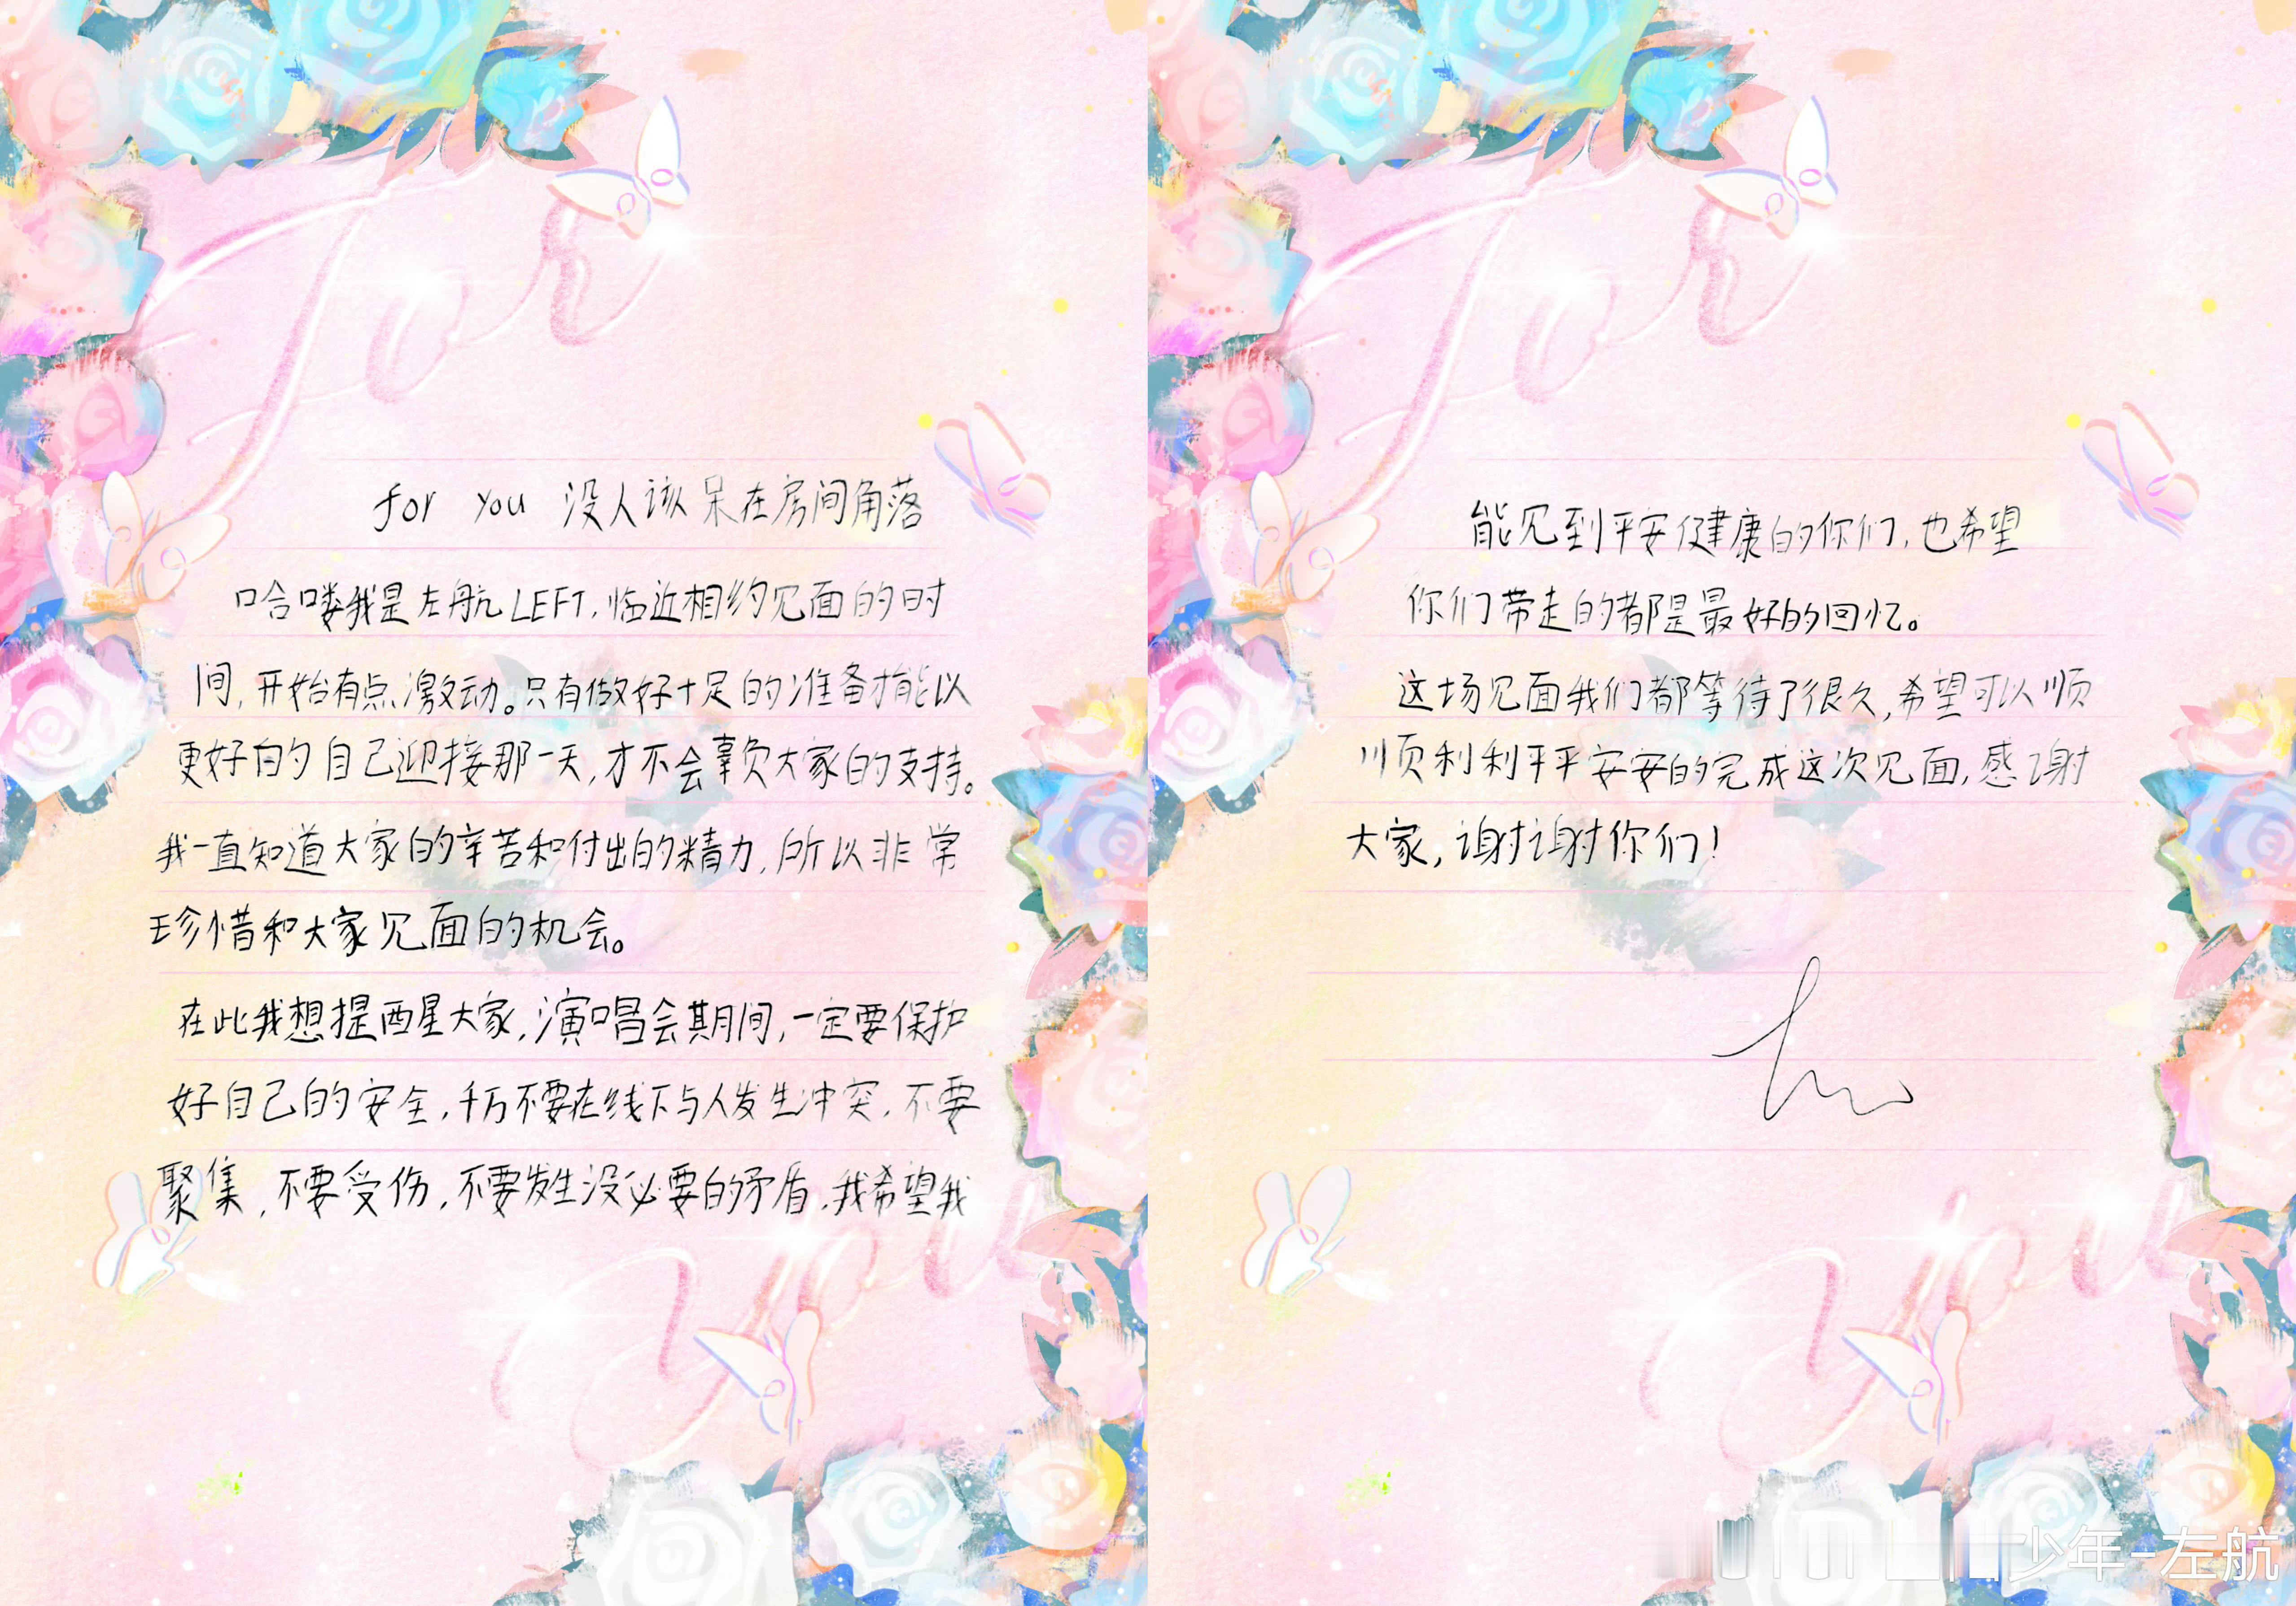 For
for you 没人该呆在房间角落
哈喽我是左航LEFT，临近相约见面的时
间，开始有点激动。只有做好十足的准备才能以
更好的自己迎接那一天，才不会辜负大家的支持。
我一直知道大家的辛苦和付出的精力，所以非常
珍惜和大家见面的机会。
在此我想提醒大家，演唱会期间，一定要保护
好自己的安全，千万不要在线下与人发生冲突，不要
聚集，不要受伤，不要发生没必要的矛盾，我希望我
You
For
能见到平安健康的你们，也希望
你们带走的都是最好的回忆。
这场见面我们都等待了很久，希望可以顺
顺利利平平安安的完成这次见面，感谢
大家，谢谢你们！
You
少年-左航